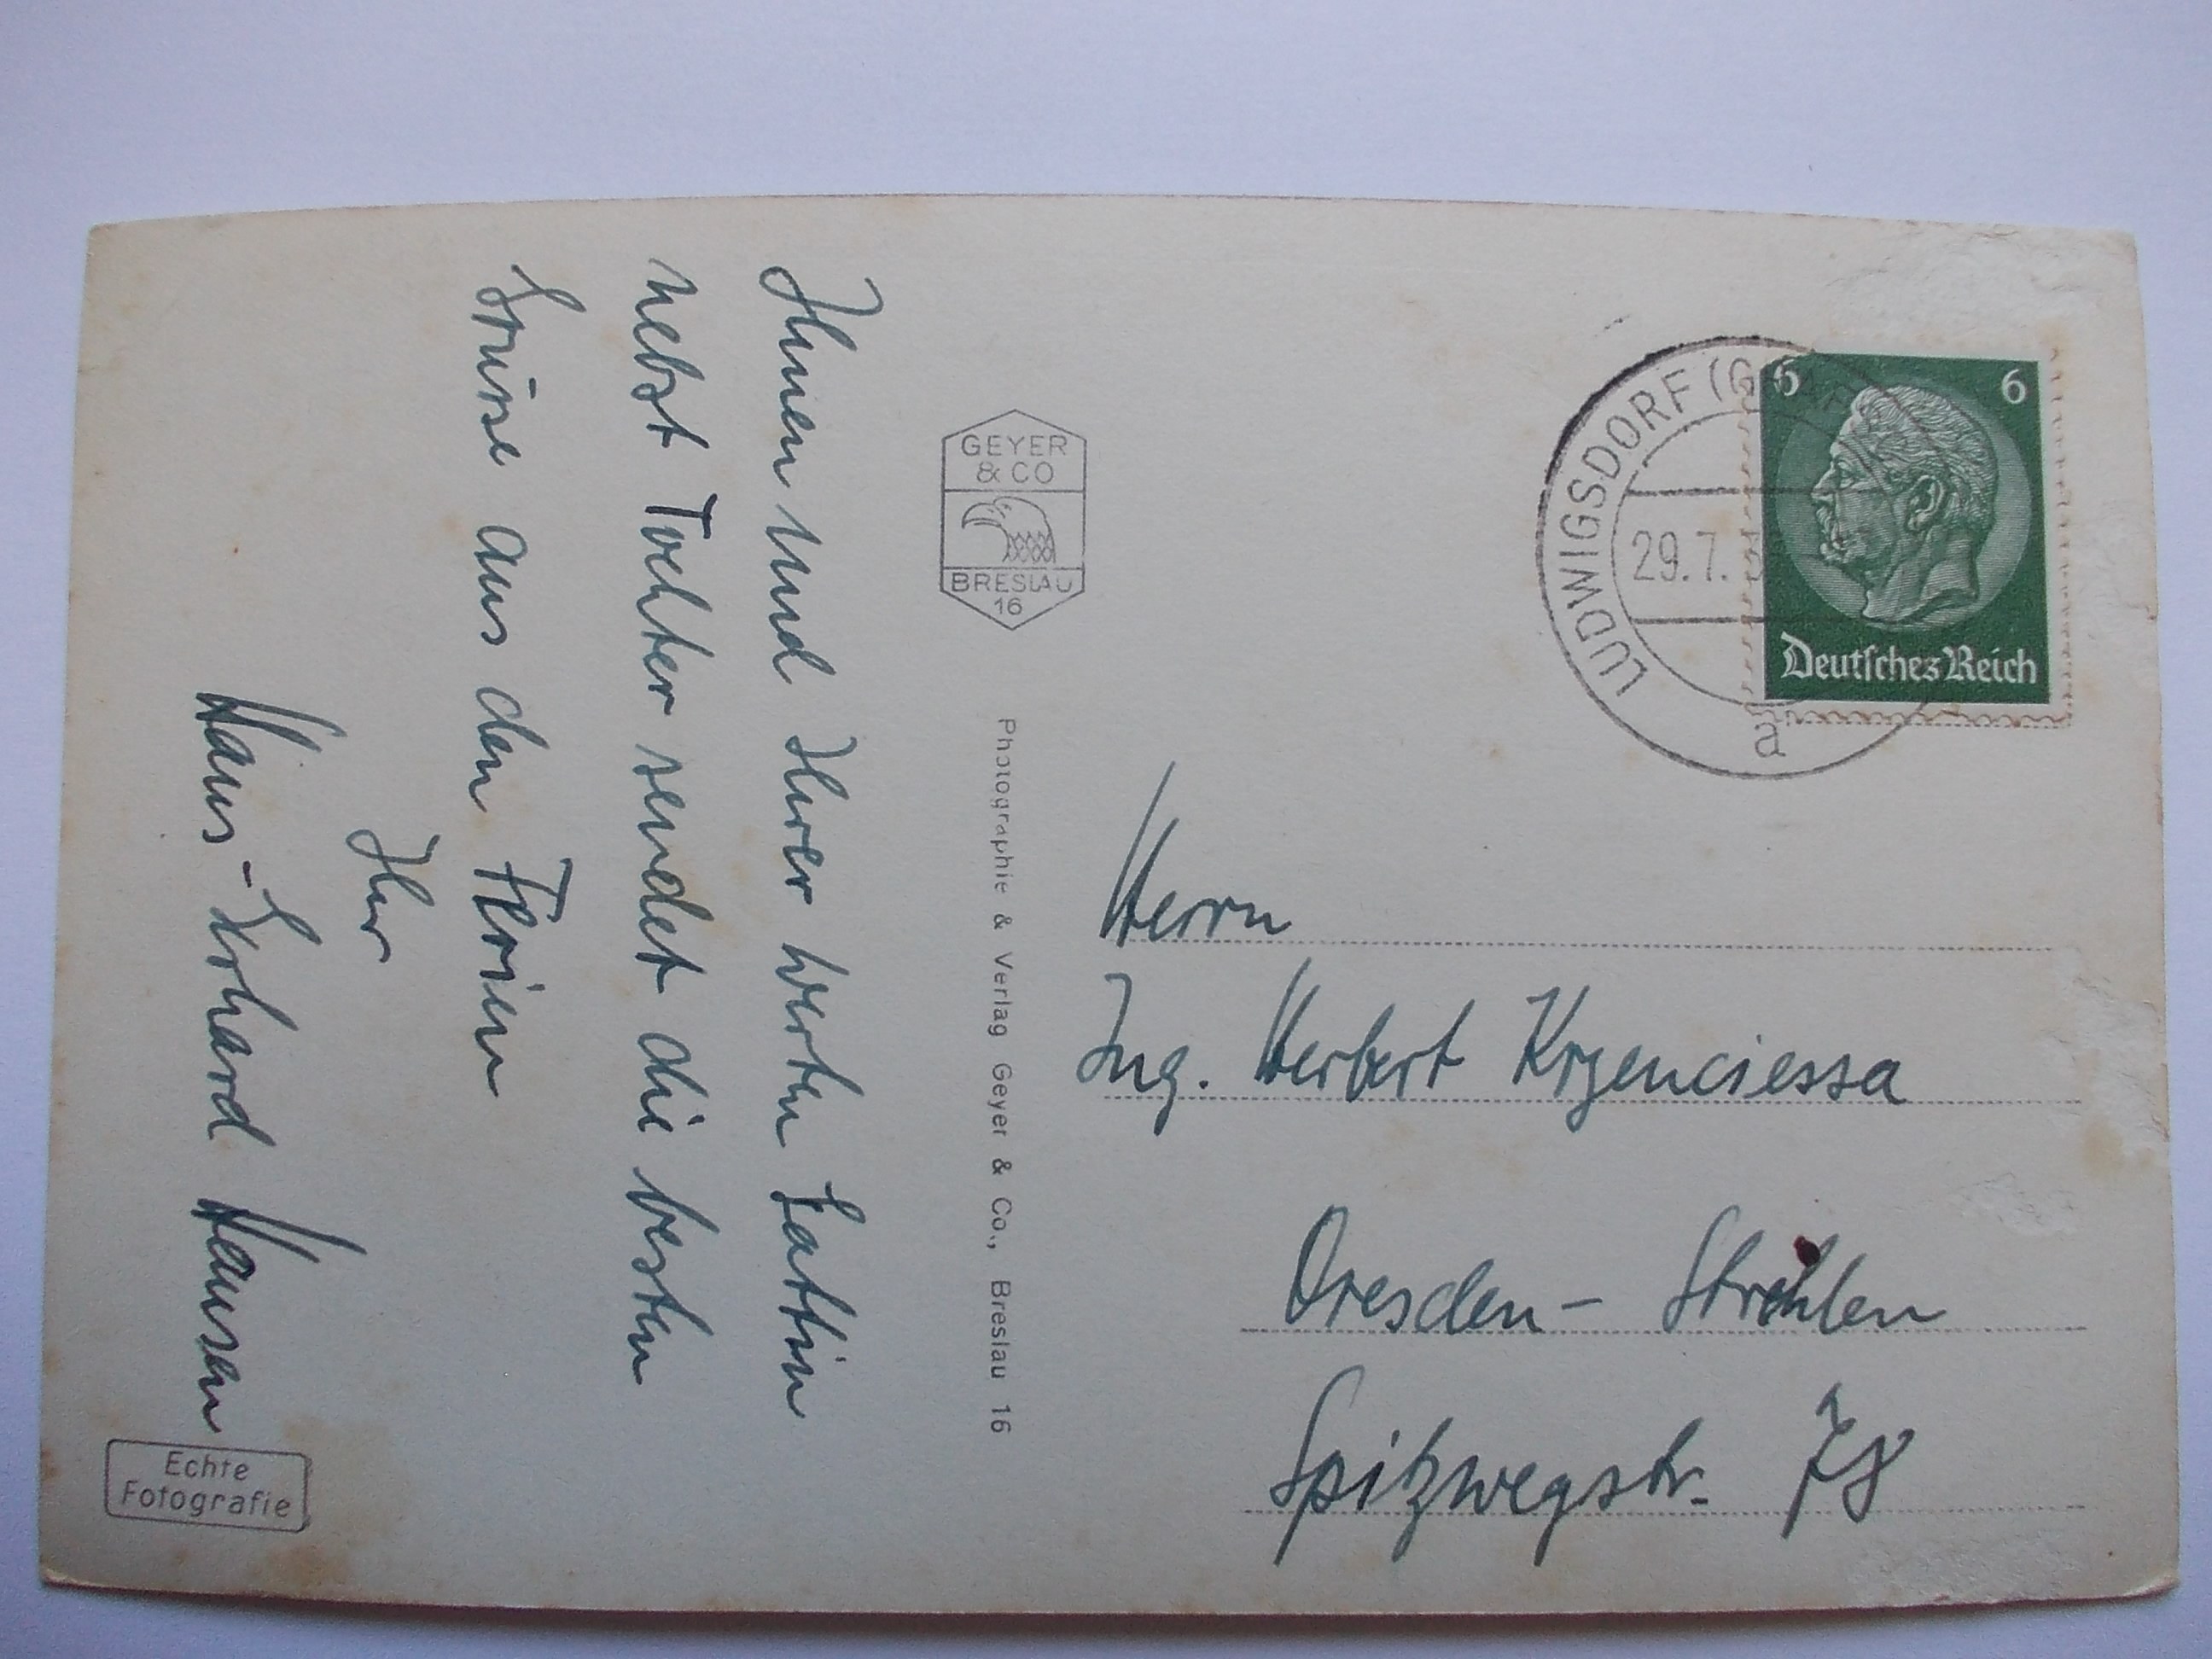 Ihnen und Ihrer werten Gattin
nebst Tochter sendet die besten
Grüsse aus den Ferien
Ihr
Hans-Gerhard Hansen
Echte
Fotografie
GEYER
& CO
BRESLAU
16
Photographie & Verlag Geyer & Co., Breslau 16
LUDWIGSDORF
29.7.
a
6 6
Deutsches Reich
Herrn
Ing. Herbert Krzenciessa
Dresden - Strehlen
Spitzwegstr. 78